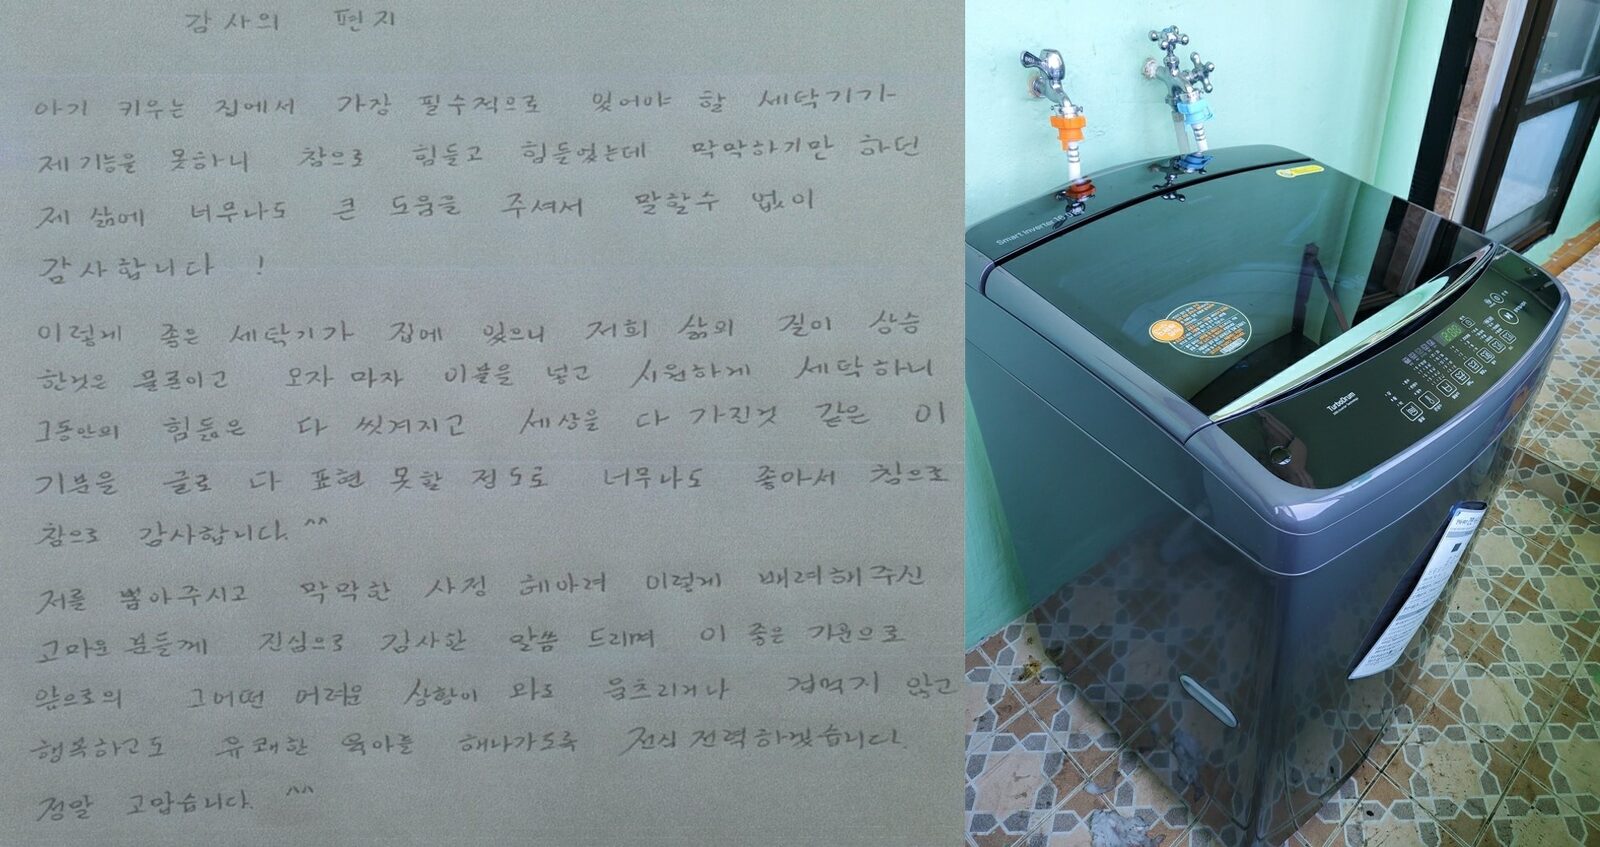 감사의 편지
아기 키우는 집에서 가장 필수적으로 있어야 할 세탁기가
제 기능을 못하니 참으로 힘들고 힘들었는데 막막하기만 하던
제 삶에 너무나도 큰 도움을 주셔서 말할수 없이
감사합니다 !
이렇게 좋은 세탁기가 집에 있으니 저희 삶의 질이 상승
한것은 물론이고 오자 마자 이불을 넣고 시원하게 세탁하니
그동안의 힘듦은 다 씻겨지고 세상을 다 가진것 같은 이
기분을 글로 다 표현 못할 정도로 너무나도 좋아서 참으로
참으로 감사합니다. ^^
저를 뽑아주시고 막막한 사정 헤아려 이렇게 배려해주신
고마운 분들께 진심으로 감사한 말씀 드리며 이 좋은 기운으로
앞으로의 그어떤 어려운 상황이 와도 움츠리거나 겁먹지 않고
행복하고도 유쾌한 육아를 해나가도록 전심 전력하겠습니다.
정말 고맙습니다. ^^
Smart Inverter
TurboDrum